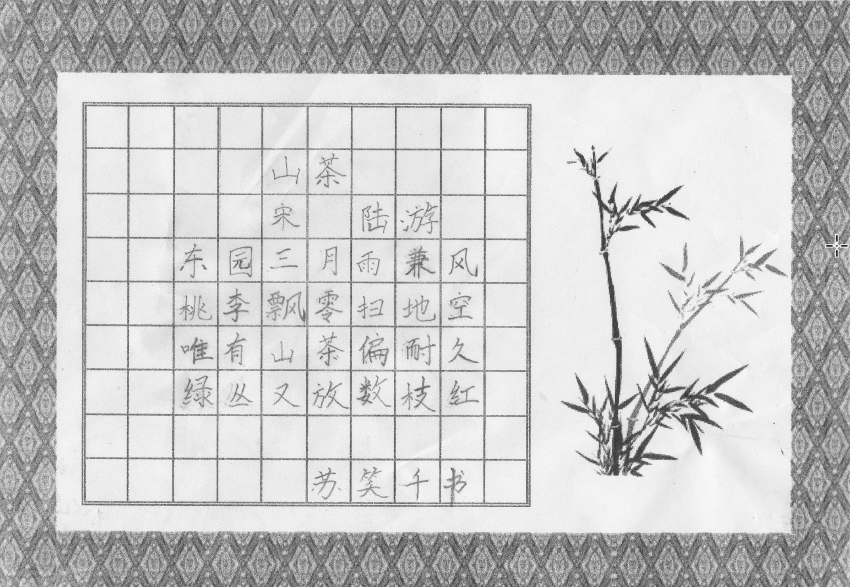 山茶
宋 陆游
东园三月雨兼风
桃李飘零扫地空
唯有山茶偏耐久
绿丛又放数枝红
苏笑千书